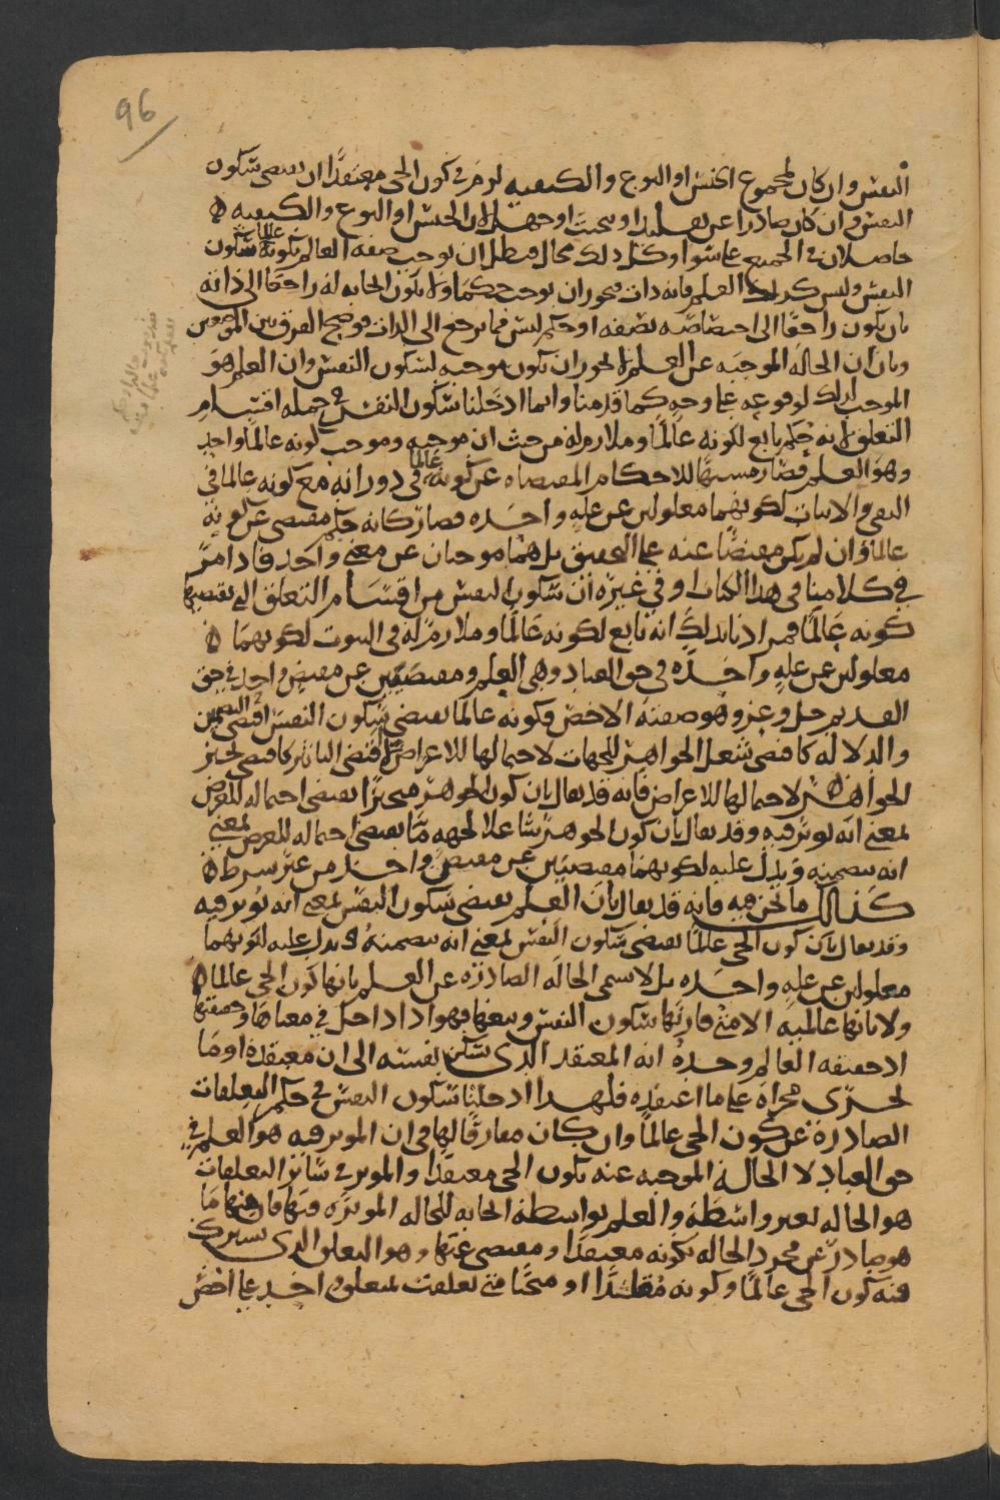 96
النفس وان كان لمجموع الجنس او النوع والكيفيه لزم في كون الحي معتقدًا ان يقتضي سكون
النفس وان كان صادرا عن تقليد او تبخيت او جهل لان الجنس او النوع والكيفيه ه
حاصلان في الجميع على سوا وكل ذلك محال فبطل ان يوجب صفه العالم بكونه عالما سكون
النفس وليس كذلك العلم فانه ذات فيجوز ان يوجب حكما ولا يكون ايجابه له راجعًا الى ذاته
بان يكون راجعًا الى اختصاصه بصفه او حكم ليس فيما يرجع الى الذات فوضح الفرق بين الموضعين
وبان ان الحاله الموجبه عن العلم لا يجوز ان يكون موجبه لسكون النفس وان العلم هو
الموجب لذلك لوقوعه على وجه كما قدمنا وانما ادخلنا سكون النفس في جمله اقسام
التعلق لانه حكم تابع لكونه عالمًا وملازم له من حيث ان موجبه وموجب كونه عالمًا واحد
وهو العلم فصار مشبهًا للاحكام المقتضاه عن كونه عالما في دورانه مع كونه عالما في
النفي والاثبات لكونهما معلولين عن عله واحده فصار كانه حكم مقتضى عن كونه
عالمًا وان لم يكن مقتضًا عنه على التحقيق بل هما موجبان عن معنى واحد فاذا مرّ
في كلامنا في هذا الكتاب او في غيره ان سكون النفس من اقسام التعلق التي يقتضيها
كونه عالمًا فمرادنا بذلك انه تابع لكونه عالمًا وملازم له في الثبوت لكونهما ه
معلولين عن عله واحده في حق العباد وهي العلم ومقتضيين عن مقتضٍ واحد في حق
القديم جل وعز وهو صفته الاخص فكونه عالما يقتضي سكون النفس اقتضى التضمين
والدلاله كما اقتضى شغل الجواهر للجهات لاحتمالها للاعراض لا اقتضى التاثير كاقتضى تحيز
الجواهر لاحتمالها للاعراض فانه قد يقال بان كون الجوهر متحيزًا يقتضي احتماله للعرض
بمعنى انه يوثر فيه وقد يقال بان كون الجوهر شاغلا لجهه مّا يقتضي احتماله للعرض بمعنى
انه يتضمنه ويدل عليه لكونهما مقتضيين عن مقتضٍ واحد من غير شرط ه
كذلك ما نحن فيه فانه قد يقال بان العلم يقتضي سكون النفس بمعنى انه يوثر فيه
وقد يقال بان كون الحي عالمًا يقتضي سكون النفس بمعنى انه يتضمنه ويدل عليه لكونهما
معلولين عن عله واحده بل لا تسمى الحاله الصادره عن العلم بانها كون الحي عالما ه
ولا بانها عالميه الا متى قارنها سكون النفس وتبعها فهو اذا داخل في معناها وحقيقتها
اذ حقيقه العالم وحده انه المعتقد الذي تسكن نفسه الى ان معتقده او ما
يجري مجراه على ما اعتقده فلهذا ادخلنا سكون النفس في حكم التعلقات
الصادره عن كون الحي عالمًا وان كان مفارقًا لها في ان الموثر فيه هو العلم في
حق العباد لا الحاله الموجبه عنه بكون الحي معتقدًا والموثر في سائر التعلقات
هو الحاله بغير واسطه والعلم بواسطه ايجابه للحاله الموثره فيها فان منها ما
هو صادر عن مجرد الحاله بكونه معتقدًا ومقتضى عنها وهو التعلق الذي يشترك
فيه كون الحي عالمًا وكونه مقلدًا او مبختًا متى تعلقت لمتعلق واحد على اخص